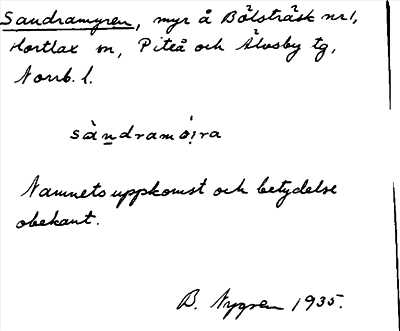 Sandramyren, myr å Bölsträsk nr 1,
Hortlax sn, Piteå och Älvsby tg,
Norrb. l.
sàndramö̀i̯ra
Namnets uppkomst och betydelse
obekant.
B. Nygren 1935.